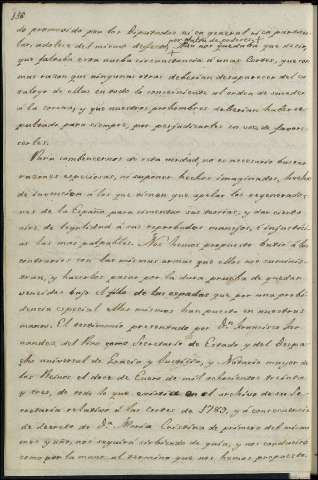 136
do promovido por los Diputados ni en general ni en particu-
lar, adolece del mismo defecto. Aun nos quedaba que decir,
por falta de poderes
que faltaba esta nueva circunstancia á unas Cortes, que con
mas razon que ningunas otras deberian desaparecer del ca-
talogo de ellas en todo lo concerniente al orden de suceder
á la corona, y que nuestros prohombres deberian haber se-
pultado para siempre, por perjudicantes en vez de favore-
cerles.
Para combencernos de esta verdad, no es necesario buscar
razones especiosas, ni suponer hechos imaginados, hechos
de invencion á los que tienen que apelar los regenerado-
res de la España para cimentar sus teorias, y dar cierto
aire de legalidad á sus reprobados manejos, é injusticias
las mas palpables. Nos hemos propuesto batir á los
contrarios con las mismas armas que ellos nos suminis-
tran, y hacerlos pasar por la dura prueba de quedar
vencidos bajo el filo de las espadas que por una provi-
dencia especial ellos mismos han puesto en nuestras
manos. El testimonio presentado por Dn. Francisco Fer-
nandez del Pino como Secretario de Estado y del Despa-
cho universal de Gracia y Justicia, y Notario mayor de
los Reinos el doce de Enero de mil ochocientos treinta
y tres, de todo lo que existia en el archivo de su Se-
cretaria relativo á las Cortes de 1789, y á consecuencia
de decreto de Da. Maria Cristina de primero del mismo
mes y año, nos seguirá sirviendo de guia, y nos conducirá
como por la mano al termino que nos hemos propuesto.